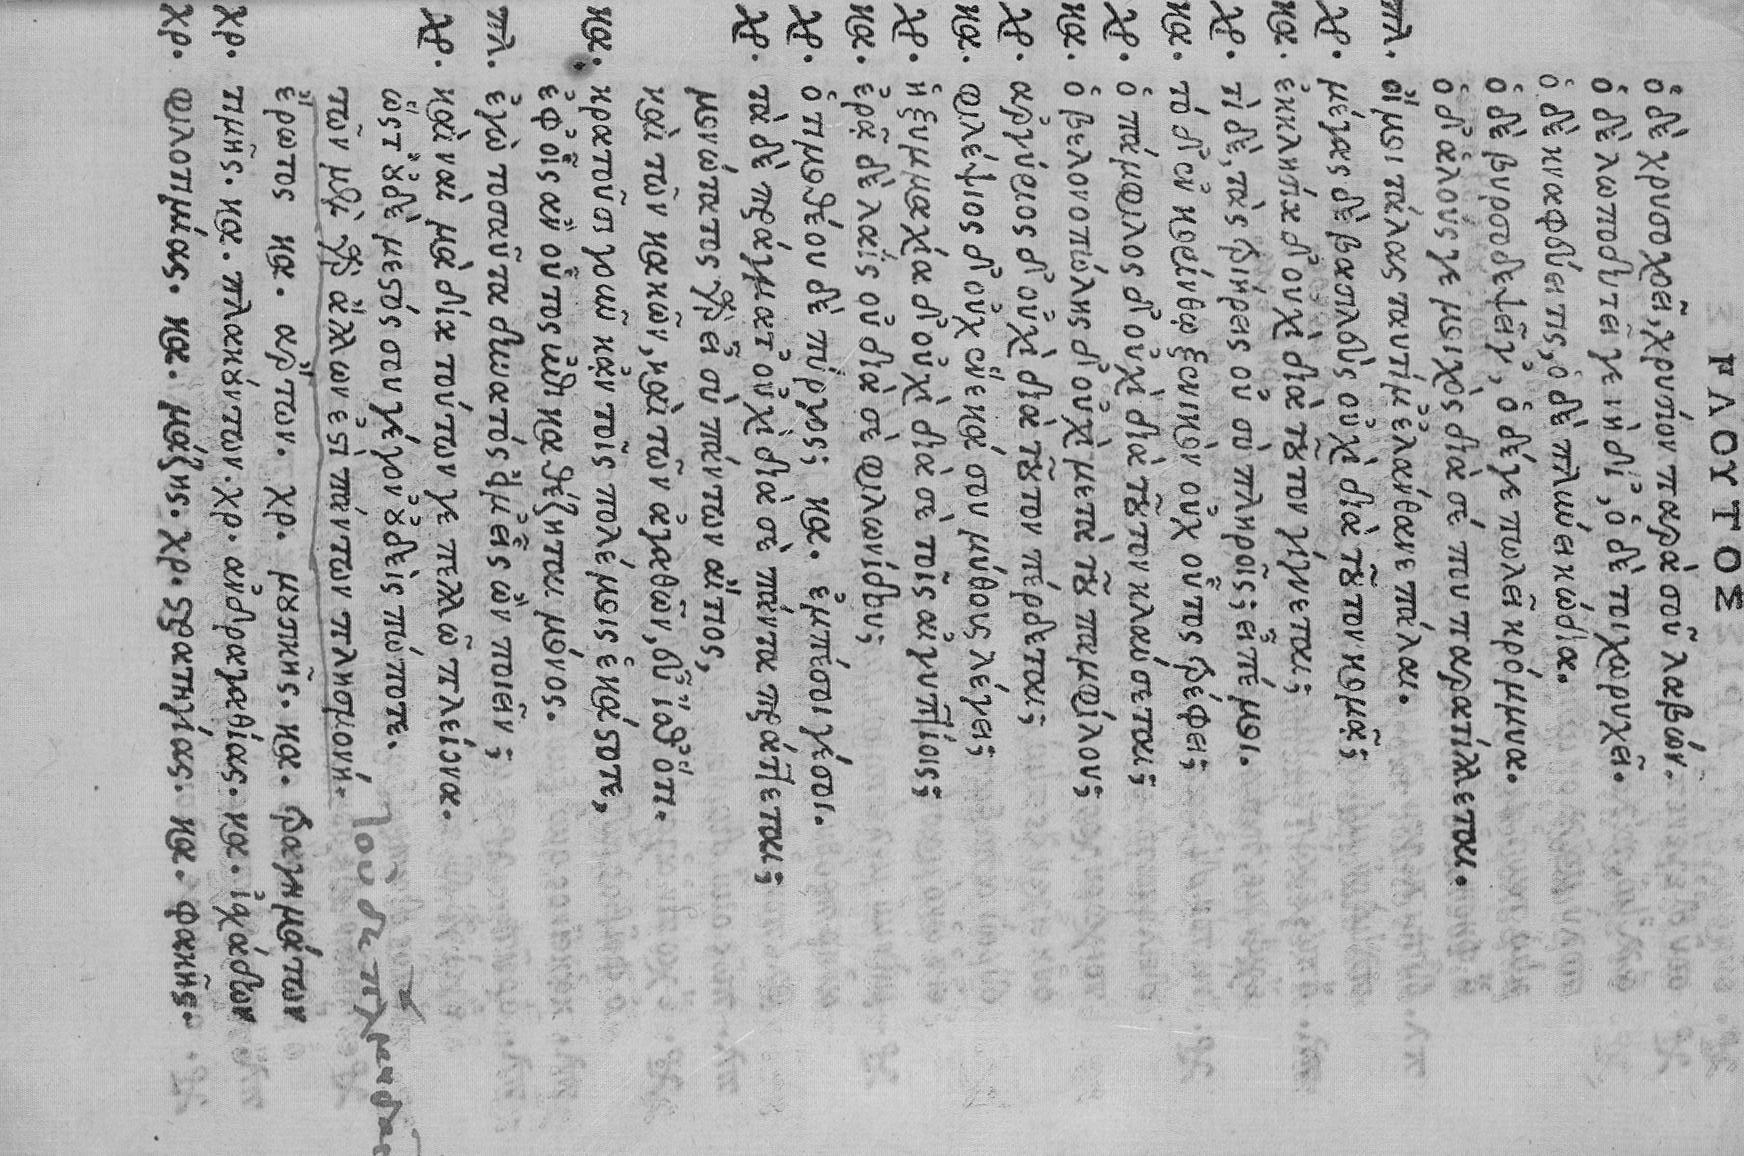 ΠΛΟΥΤΟΣ
ὁ δὲ χρυσοχοεῖ, χρυσίον παρὰ σοῦ λαβών.
ὁ δὲ λωποδυτεῖ γε νὴ δί, ὁ δὲ τοιχωρυχεῖ.
ὁ δὲ κναφεύει τις, ὁ δὲ πλύνει κώδια.
ὁ δὲ βυρσοδεψεῖ γ, ὁ δέ γε πωλεῖ κρόμμυα.
ὁ δ' ἁλούς γε μοιχὸς διὰ σέ που παρατίλλεται.
πλ. οἴμοι τάλας ταυτί μ' ἐλάνθανε πάλαι.
χρ. μέγας δὲ βασιλεὺς οὐχὶ διὰ τοῦτον κομᾷ;
κα. ἐκκλησία δ' οὐχὶ διὰ τοῦτον γίγνεται;
χρ. τί δὲ, τὰς τριήρεις οὐ σὺ πληροῖς; εἰπέ μοι.
κα. τὸ δ' ἐν κορίνθῳ ξενικὸν οὐχ οὗτος τρέφει;
χρ. ὁ πάμφιλος δ' οὐχὶ διὰ τοῦτον κλαύσεται;
κα. ὁ βελονοπώλης δ' οὐχὶ μετὰ τοῦ παμφίλου;
χρ. ἀγύρριος δ' οὐχὶ διὰ τοῦτον πέρδεται;
κα. φιλέψιος δ' οὐχ ἕνεκα σοῦ μύθους λέγει;
χρ. ἡ ξυμμαχία δ' οὐχὶ διὰ σὲ τοῖς αἰγυπτίοις;
κα. ἐρᾷ δὲ λαΐς οὐ διὰ σὲ φιλωνίδου;
χρ. ὁ τιμοθέου δὲ πύργος; κα. ἐμπέσοι γέ σοι.
χρ. τὰ δὲ πράγματ' οὐχὶ διὰ σὲ πάντα πράττεται;
μονώτατος γὰρ εἶ σὺ πάντων αἴτιος,
καὶ τῶν κακῶν, καὶ τῶν ἀγαθῶν, εὖ ἴσθ' ὅτι.
κα. κρατοῦσι γοῦν κἀν τοῖς πολέμοις ἑκάστοτε,
ἐφ' οἷς ἂν οὗτος ἐπικαθέζηται μόνος.
πλ. ἐγὼ τοσαῦτα δυνατός εἰμ' εἷς ὢν ποιεῖν;
χρ. καὶ ναὶ μὰ δία τούτων γε πολλῷ πλείονα.
ὥστ' οὐδὲ μεστός σου γέγον' οὐδεὶς πώποτε.
τῶν μὲν γὰρ ἄλλων ἐστὶ πάντων πλησμονή.
ἔρωτος κα. ἄρτων. χρ. μουσικῆς. κα. τραγημάτων
χρ. τιμῆς. κα. πλακούντων. χρ. ἀνδραγαθίας. κα. ἰσχάδων
χρ. φιλοτιμίας. κα. μάζης. χρ. στρατηγίας. κα. φακῆς.